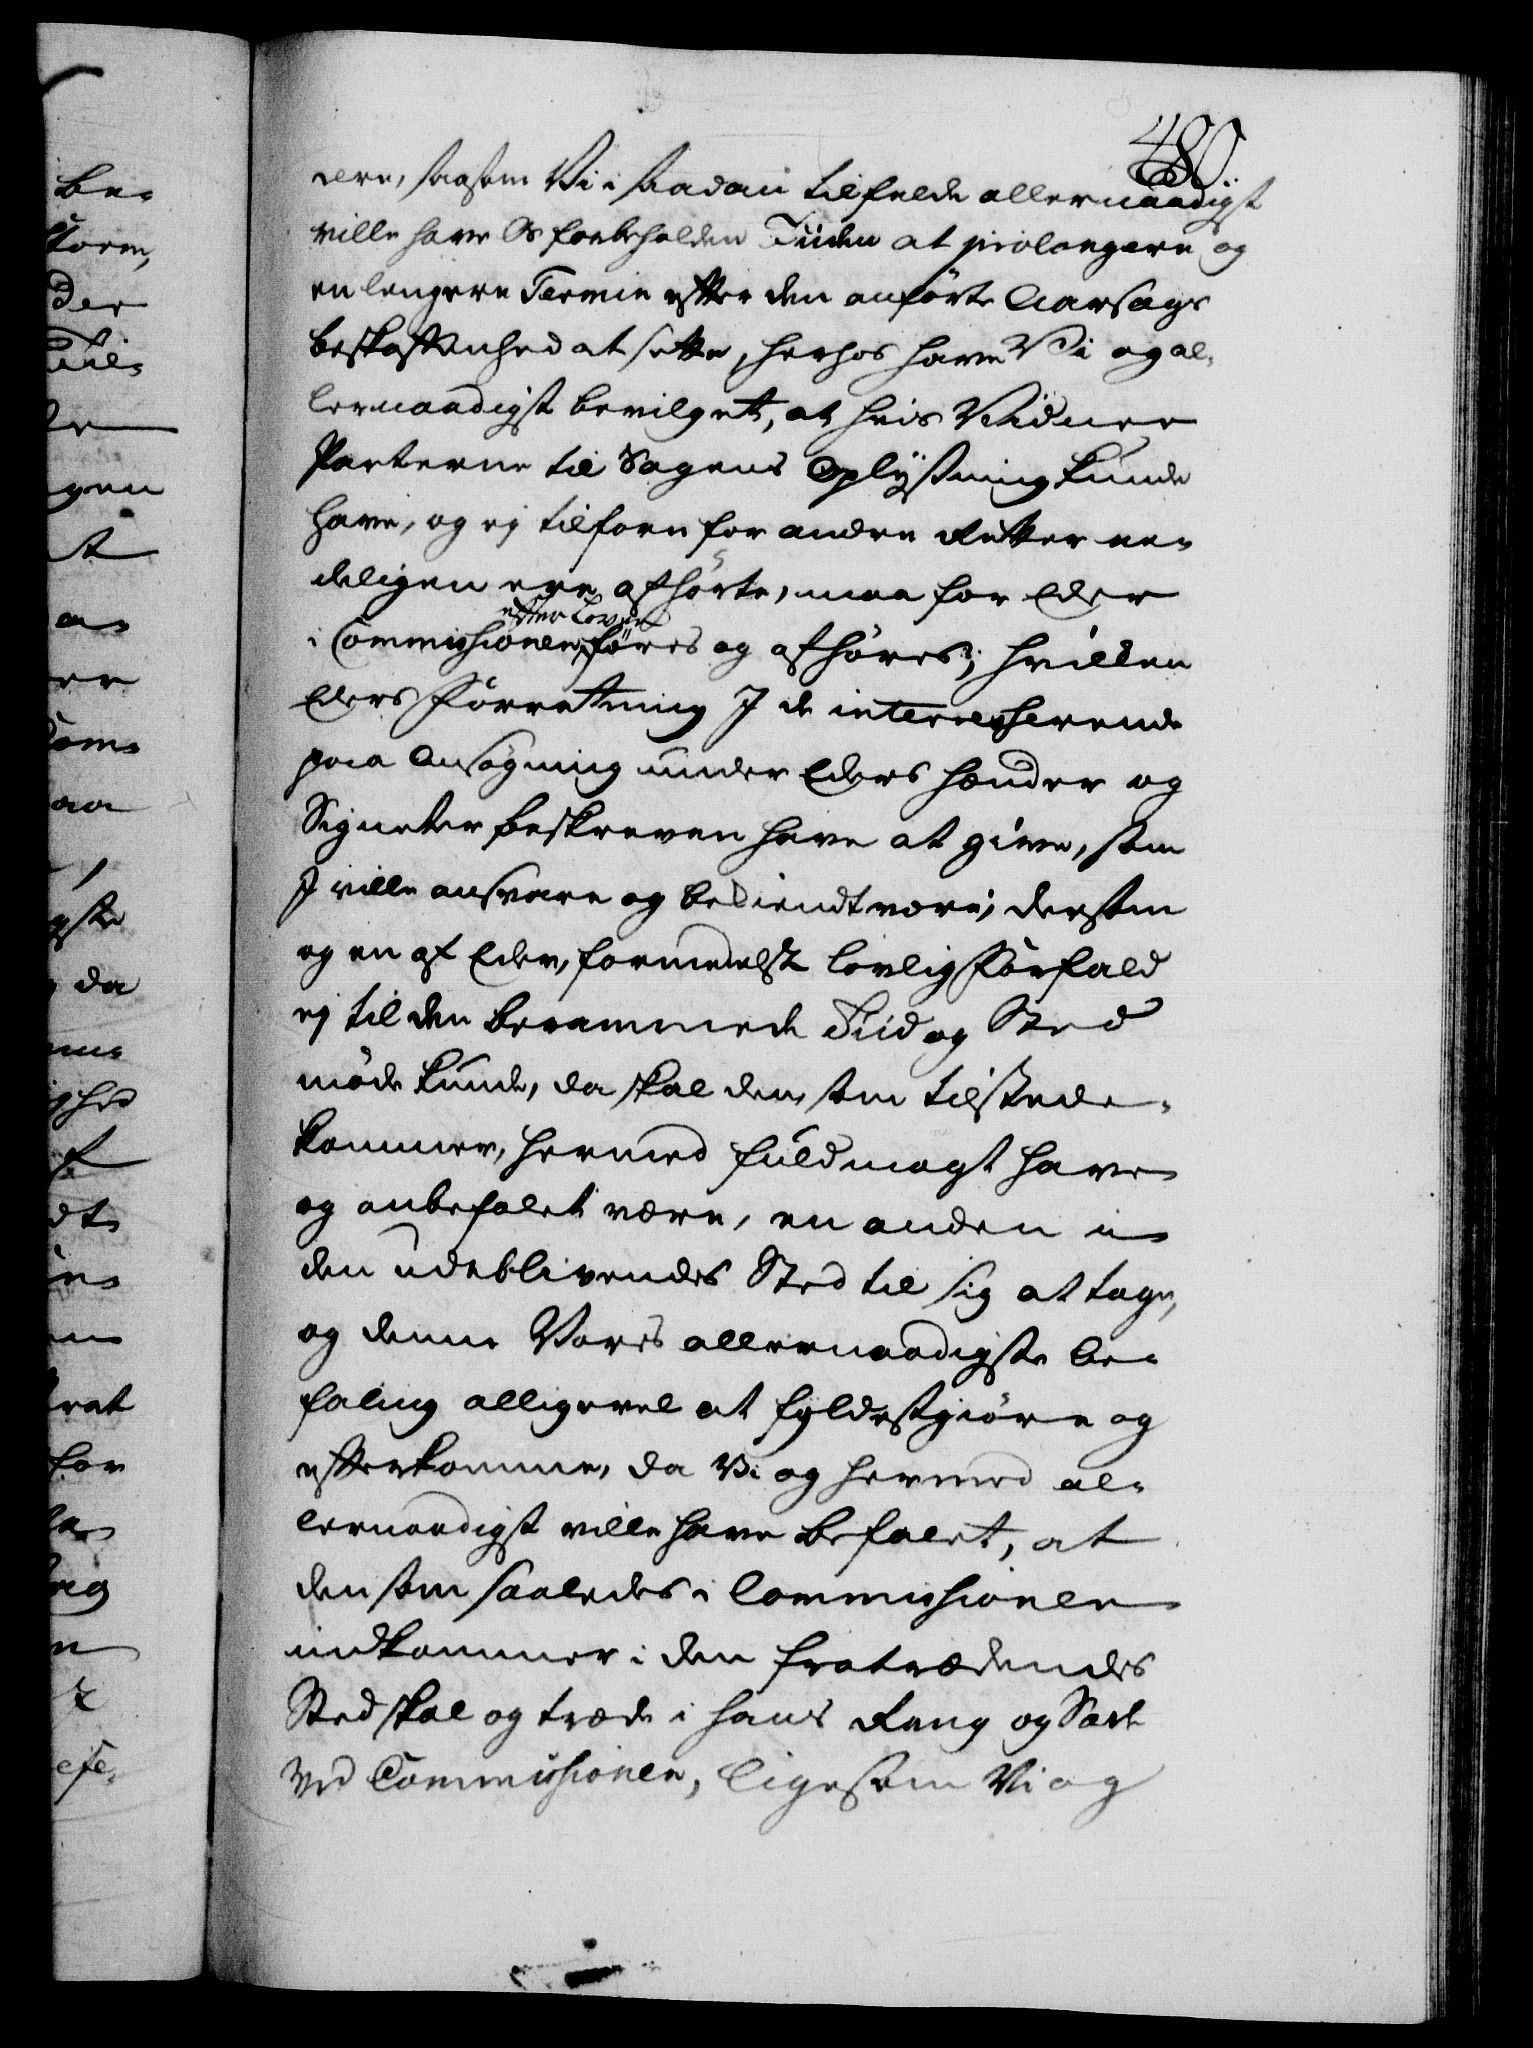 480
dere, saasom Vi i saadan tilfelde allernaadigst
ville have Os forbeholden Tiiden at prolongere og
en lengere Termin efter den anførte Aarsags
beskaffenhed at sette, herhos have Vi og al-
lernaadigst bevilget, at hvis Vidner
Parterne til Sagens Oplysning kunde
have, og ej tilforn for andre Retter een-
deligen ere afhørte, maa for Eder
efter Loven
i Commissionen føres og afhøres; hvilken
Eders Forretning I de interesserende
paa Ansøgning under Eders Hænder og
Signeter beskreven have at give, som
I ville ansvare og bekiendt være; dersom
og en af Eder, formedelst lovlig Forfald
ej til den berammede Tiid og Sted
møde kunde, da skal den, som tilstede-
kommer, hermed fuldmagt have
og anbefalet være, en anden i
den udeblivendes Sted til sig at tage,
og denne Vores allernaadigste be-
faling alligevel at fyldestgiøre og
efterkomme, da Vi og hermed al-
lernaadigst ville have befalet, at
den som saaledes i Commissionen
indkommer i den fratrædendes
Sted skal og træde i hans Rang og Sæde
ved Commissionen, ligesom Vi og